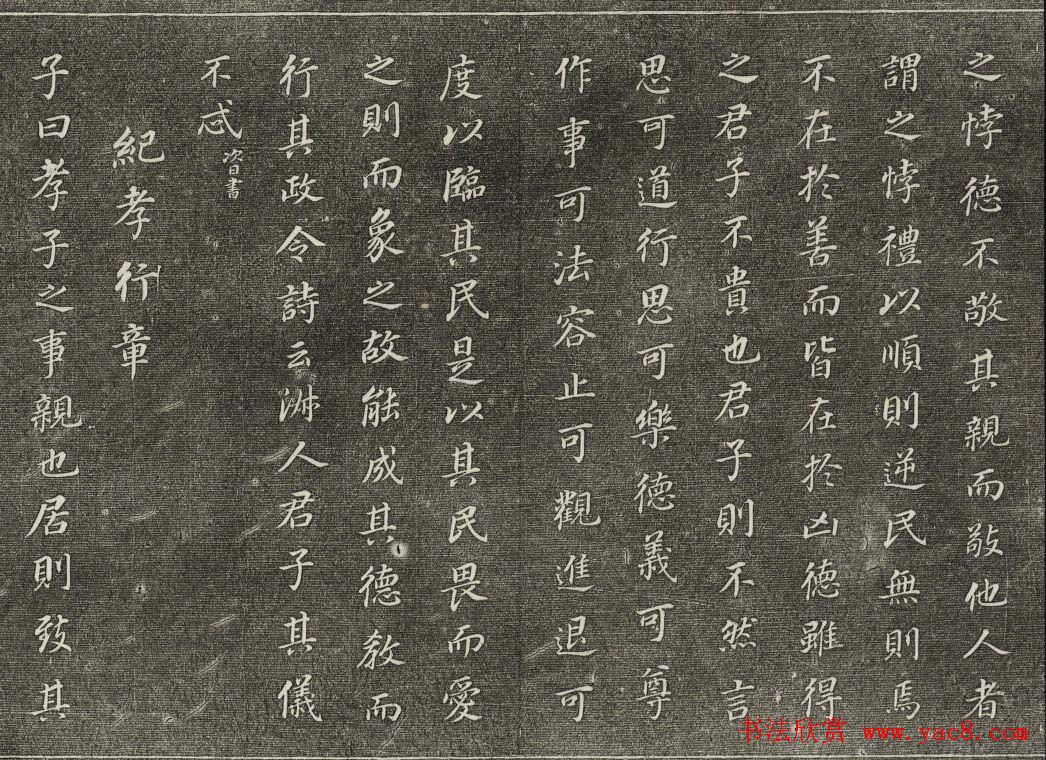 之悖德不敬其親而敬他人者
謂之悖禮以順則逆民無則焉
不在於善而皆在於凶德雖得
之君子不貴也君子則不然言
思可道行思可樂德義可尊
作事可法容止可觀進退可
度以臨其民是以其民畏而愛
之則而象之故能成其德教而
行其政令詩云淋人君子其儀
不忒
次日書
紀孝行章
子曰孝子之事親也居則致其
书法欣赏 www.yac8.com